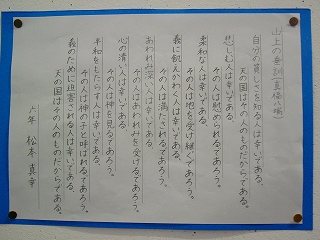 山上の垂訓真福八端
自分の貧しさを知る人は幸いである。
天の国はその人のものだからである。
悲しむ人は幸いである。
その人は慰められるであろう。
柔和な人は幸いである。
その人は地を受け継ぐであろう。
義に飢えかわく人は幸いである。
その人は満たされるであろう。
あわれみ深い人は幸いである。
その人はあわれみを受けるであろう。
心の清い人は幸いである
その人は神を見るであろう。
平和をもたらす人は幸いである。
その人は神の子と呼ばれるであろう。
義のために迫害される人は幸いである。
天の国はその人のものだからである。
六年 松本 真幸